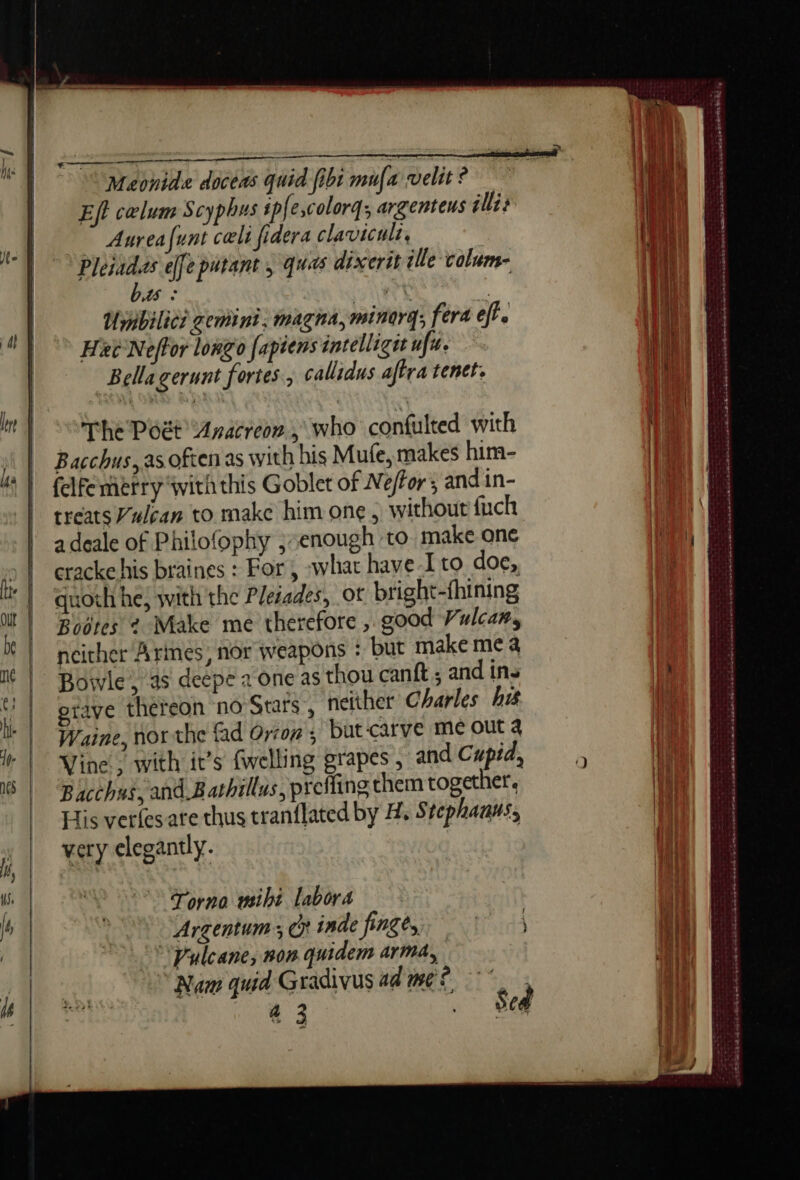 Mæonidæ doceas quid ſibi muſa velit?
Eſt cælum Scyphus ipſe, colorq; argenteus illi:
Aurea ſunt cœli ſidera claviculi,
Pleiadas eſſe putant, quas dixerit ille colum-
bas:
Umbilici gemini, magna, minorq; fera eſt.
Hæc Neſtor longo ſapiens intelligit uſu.
Bella gerunt fortes, callidus aſtra tenet.
The Poët Anacreon, who conſulted with
Bacchus, as often as with his Muſe, makes him-
ſelfe merry with this Goblet of Neſtor; and in-
treats Vulcan to make him one, without ſuch
a deale of Philoſophy, enough to make one
cracke his braines: For, what have I to doe,
quoth he, with the Pleiades, or bright-ſhining
Boötes? Make me therefore, good Vulcan,
neither Armes, nor weapons: but make me a
Bowle, as deepe a one as thou canſt; and in-
grave thereon no Stars, neither Charles his
Waine, nor the ſad Orion; but carve me out a
Vine, with it's ſwelling grapes, and Cupid,
Bacchus, and Bathillus, preſſing them together.
His verſes are thus tranſlated by H. Stephanus,
very elegantly.
Torno mihi labora
Argentum; & inde finge,
Vulcane, non quidem arma,
Nam quid Gradivus ad me?
a 3 Sed